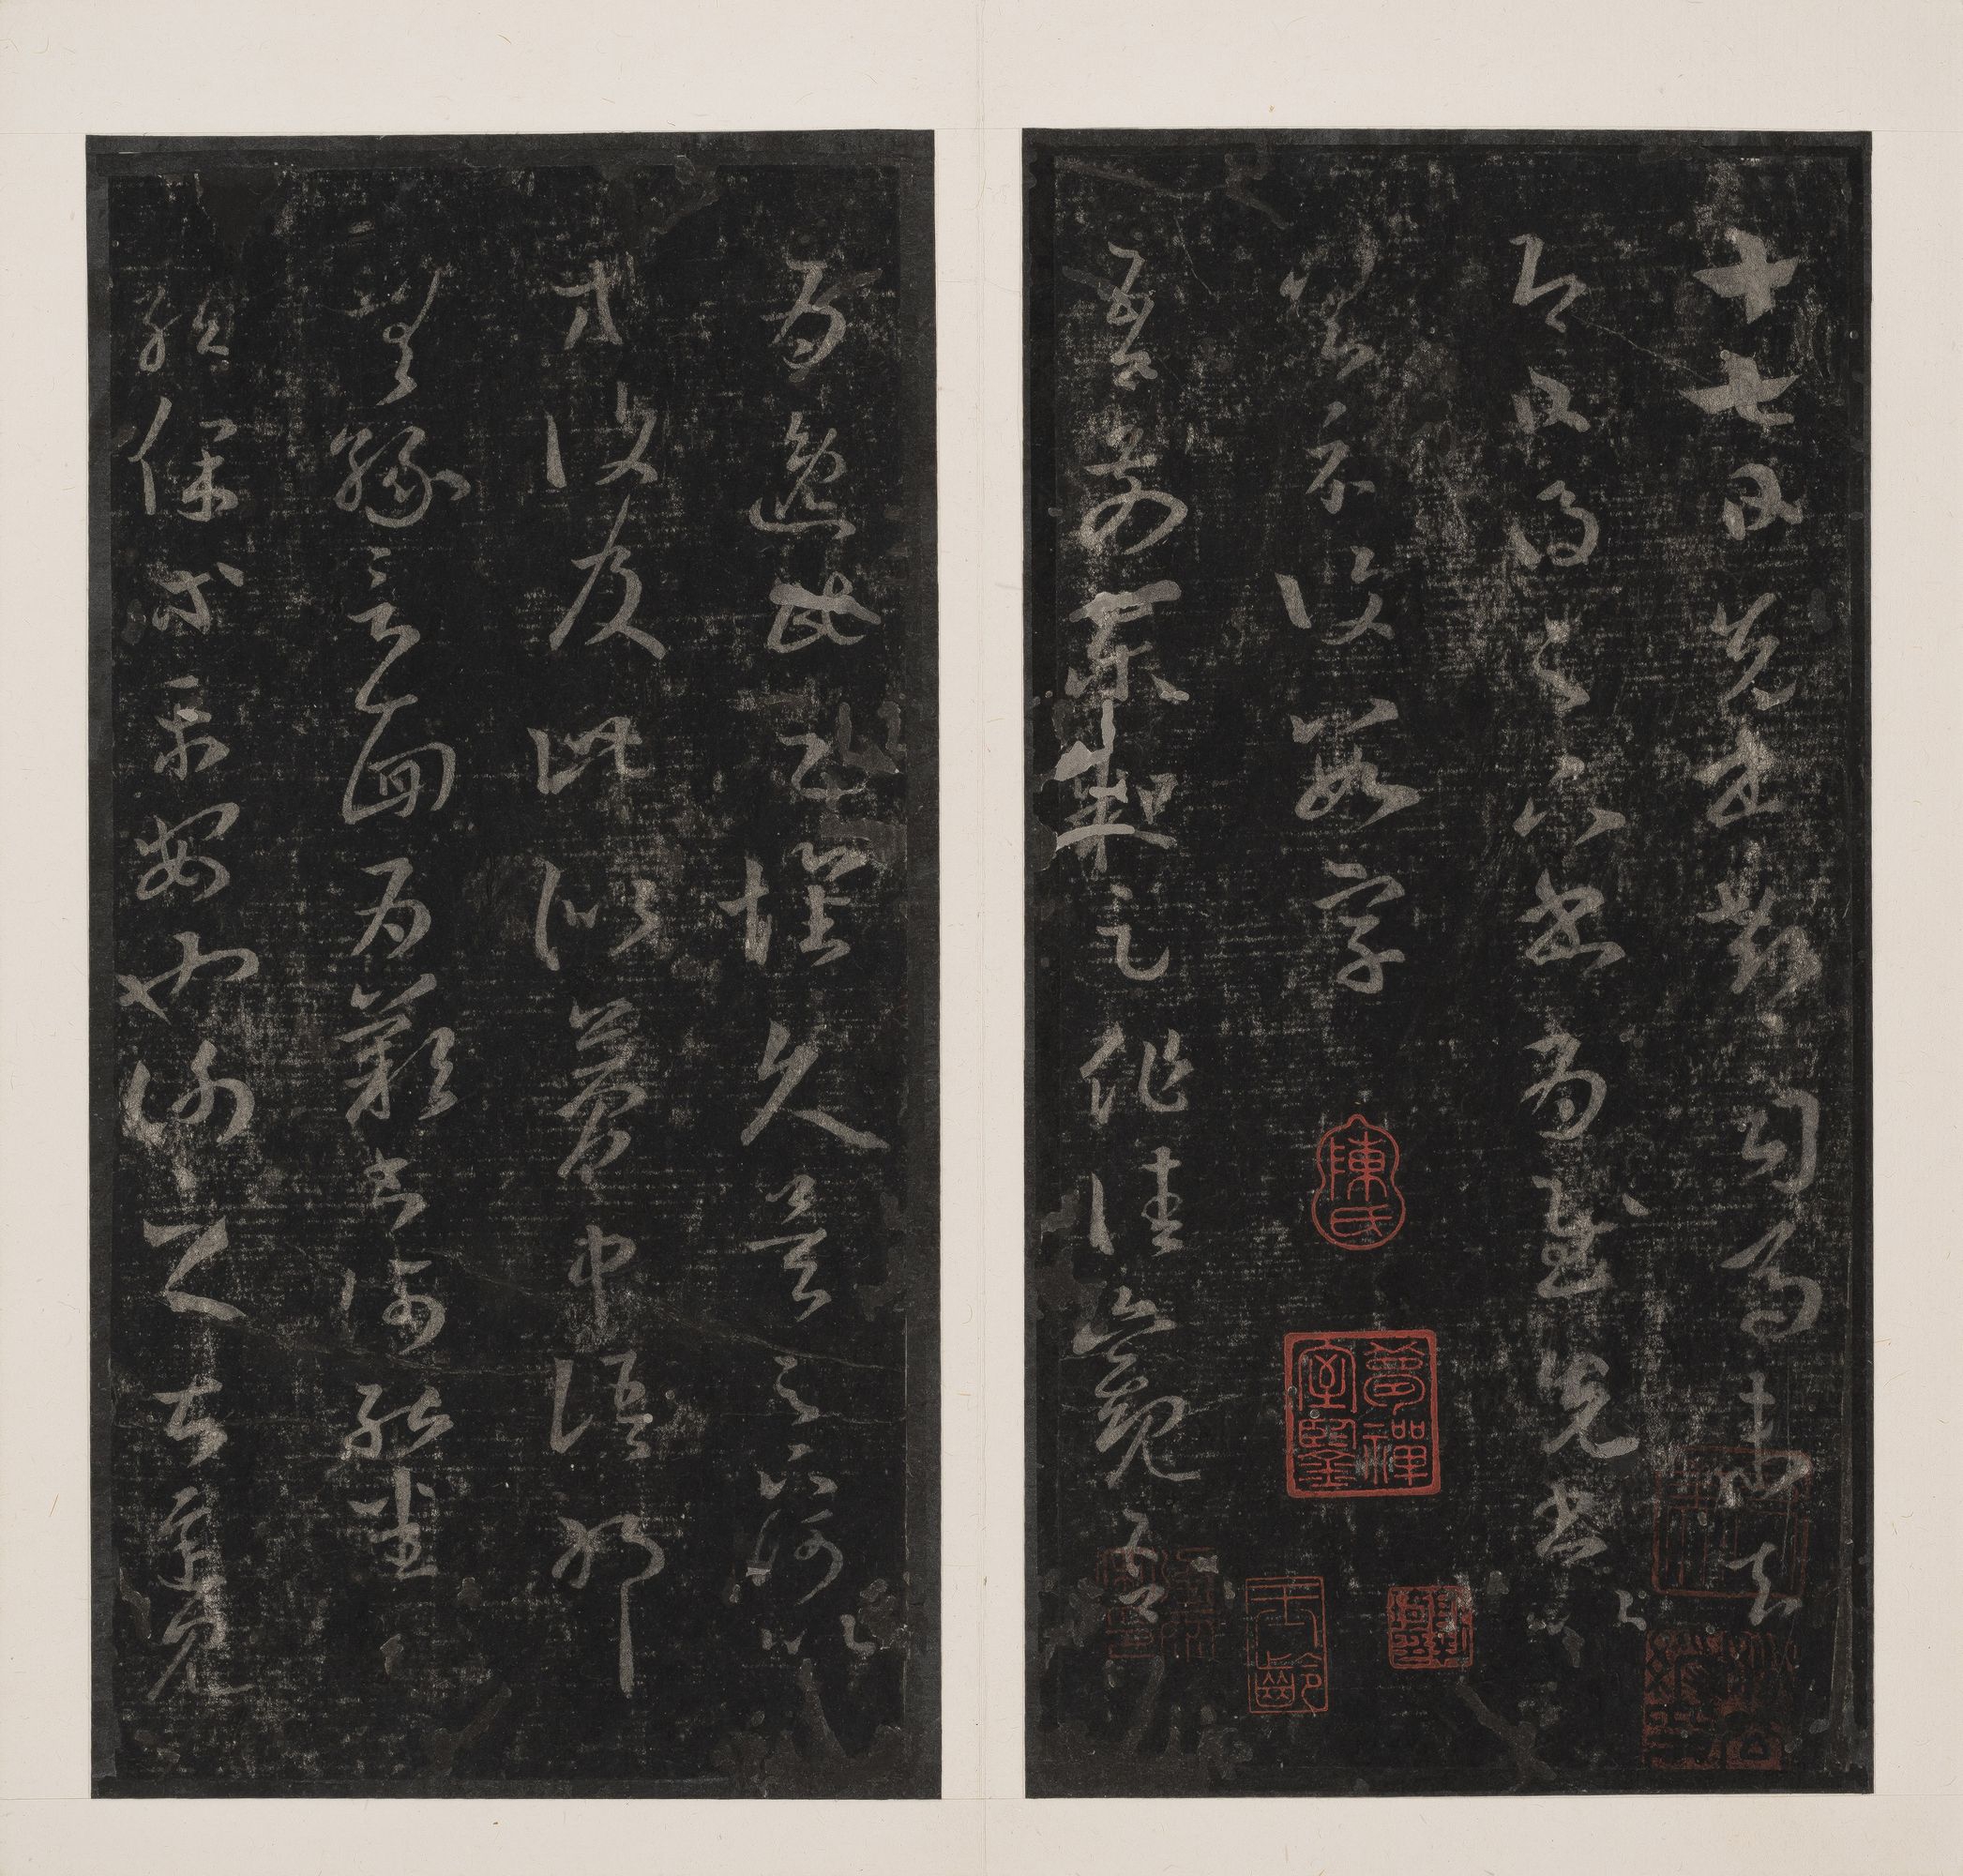 十七日先書郗司馬未去
即日得足下書為慰先書
以具示復數字
陳氏
夢禪室鑒
吾前東粗足作佳觀吾
為逸民之懷久矣足下何以
方復及此似夢中語耶
無緣言面為歎書何能悉
龍保等平安也謝之甚遲見